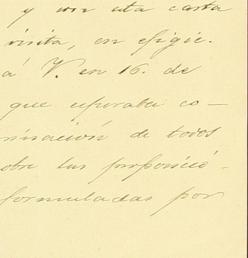 y con esta carta
visita, en efigie.
á V. en 16. de
que esperaba co-
minación de todos
obre las proposició-
formuladas por